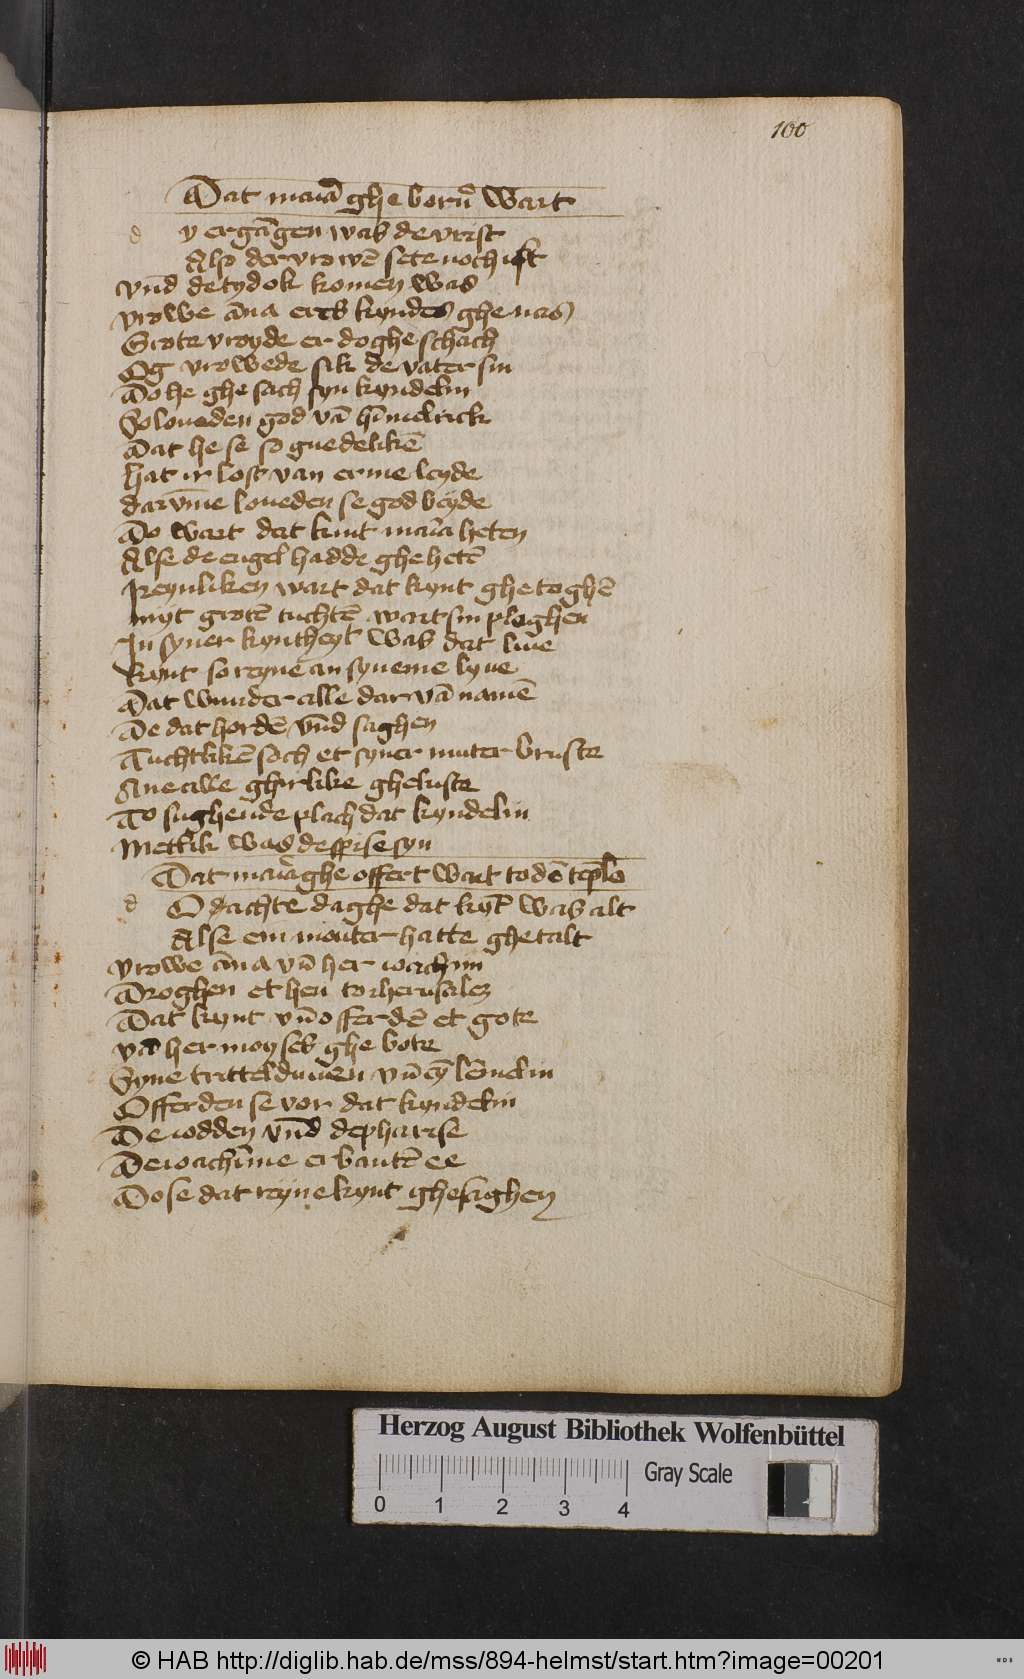 100
Dat maria ghe born wart
d
y ergāgen was de vrist
Also der vrowē sete noch ist
vn̄d de tyd ok komen was
vrowe āna eres kyndes ghe nas
Grote vroyde er do ghe schach
Og vrowede sik de vater sin
Do he ghe sach syn kyndelin
So loueden god vā hīmelrick
Dat he se so guedelikē
hat ir lost van erme leyde
dar vm̄e loueden se god beyde
Do wart dat kint maria heten
Alse de engel hadde ghe hetē
Reynliken wart dat kynt ghe toghē
myt grotē tuchtē wart sin ploghen
In syner kyntheyt was dat liue
kynt so reyne an syneme lyue
Dat wunder alle dar vā namē
De dat hordē vn̄d saghen
Tuchtlikē soch et syner muter bruste
Ane alle ghirlike gheluste
To sughende plach dat kyndelin
Metlik was de spise syn
Dat maria ghe offert wart to dē tēplo
d
O dachte daghe dat kȳt was alt
Alse ein mouter hatte ghe talt
vrowe āna vn̄ her ioachim
Droghen et hen to iherusalem
Dat kynt vn̄ offerdē et gote
vā her moyses ghe bote
Syne trittelduuen vn̄ eȳ lēmelin
Offerden se vor dat kyndelin
De iodden vn̄d de pharise
De ioachime er bantē ee
Do se dat reyne kynt ghesighen
Herzog August Bibliothek Wolfenbüttel
Gray Scale
0 1 2 3 4
© HAB http://diglib.hab.de/mss/894-helmst/start.htm?image=00201